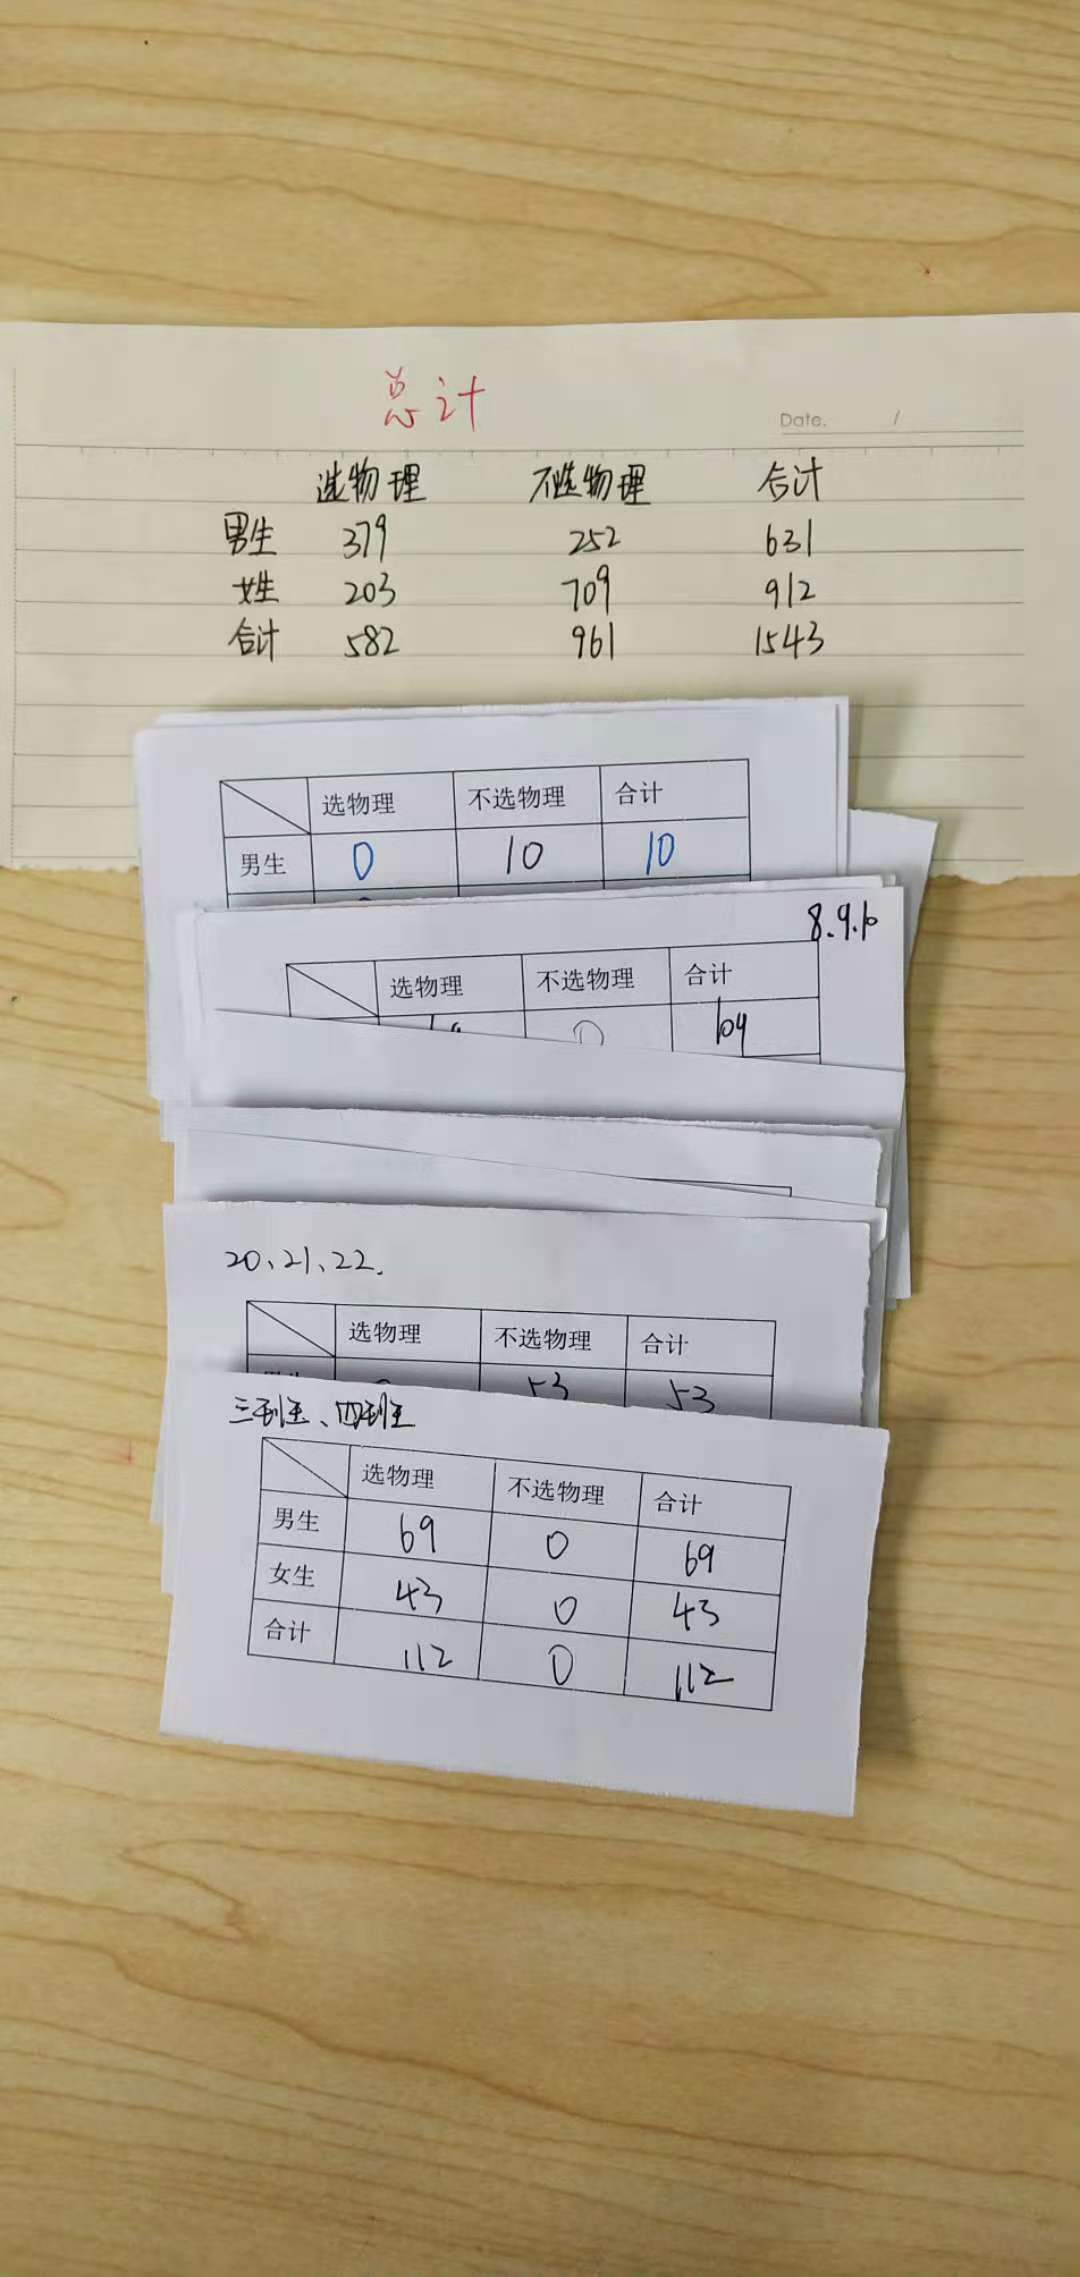 总计
Date. /
选物理 不选物理 合计
男生 379 252 631
女生 203 709 912
合计 582 961 1543
选物理 不选物理 合计
男生 0 10 10
8.9.10
选物理 不选物理 合计
0 104
20、21、22.
选物理 不选物理 合计
53 53
三班、四班
选物理 不选物理 合计
男生 69 0 69
女生 43 0 43
合计 112 0 112